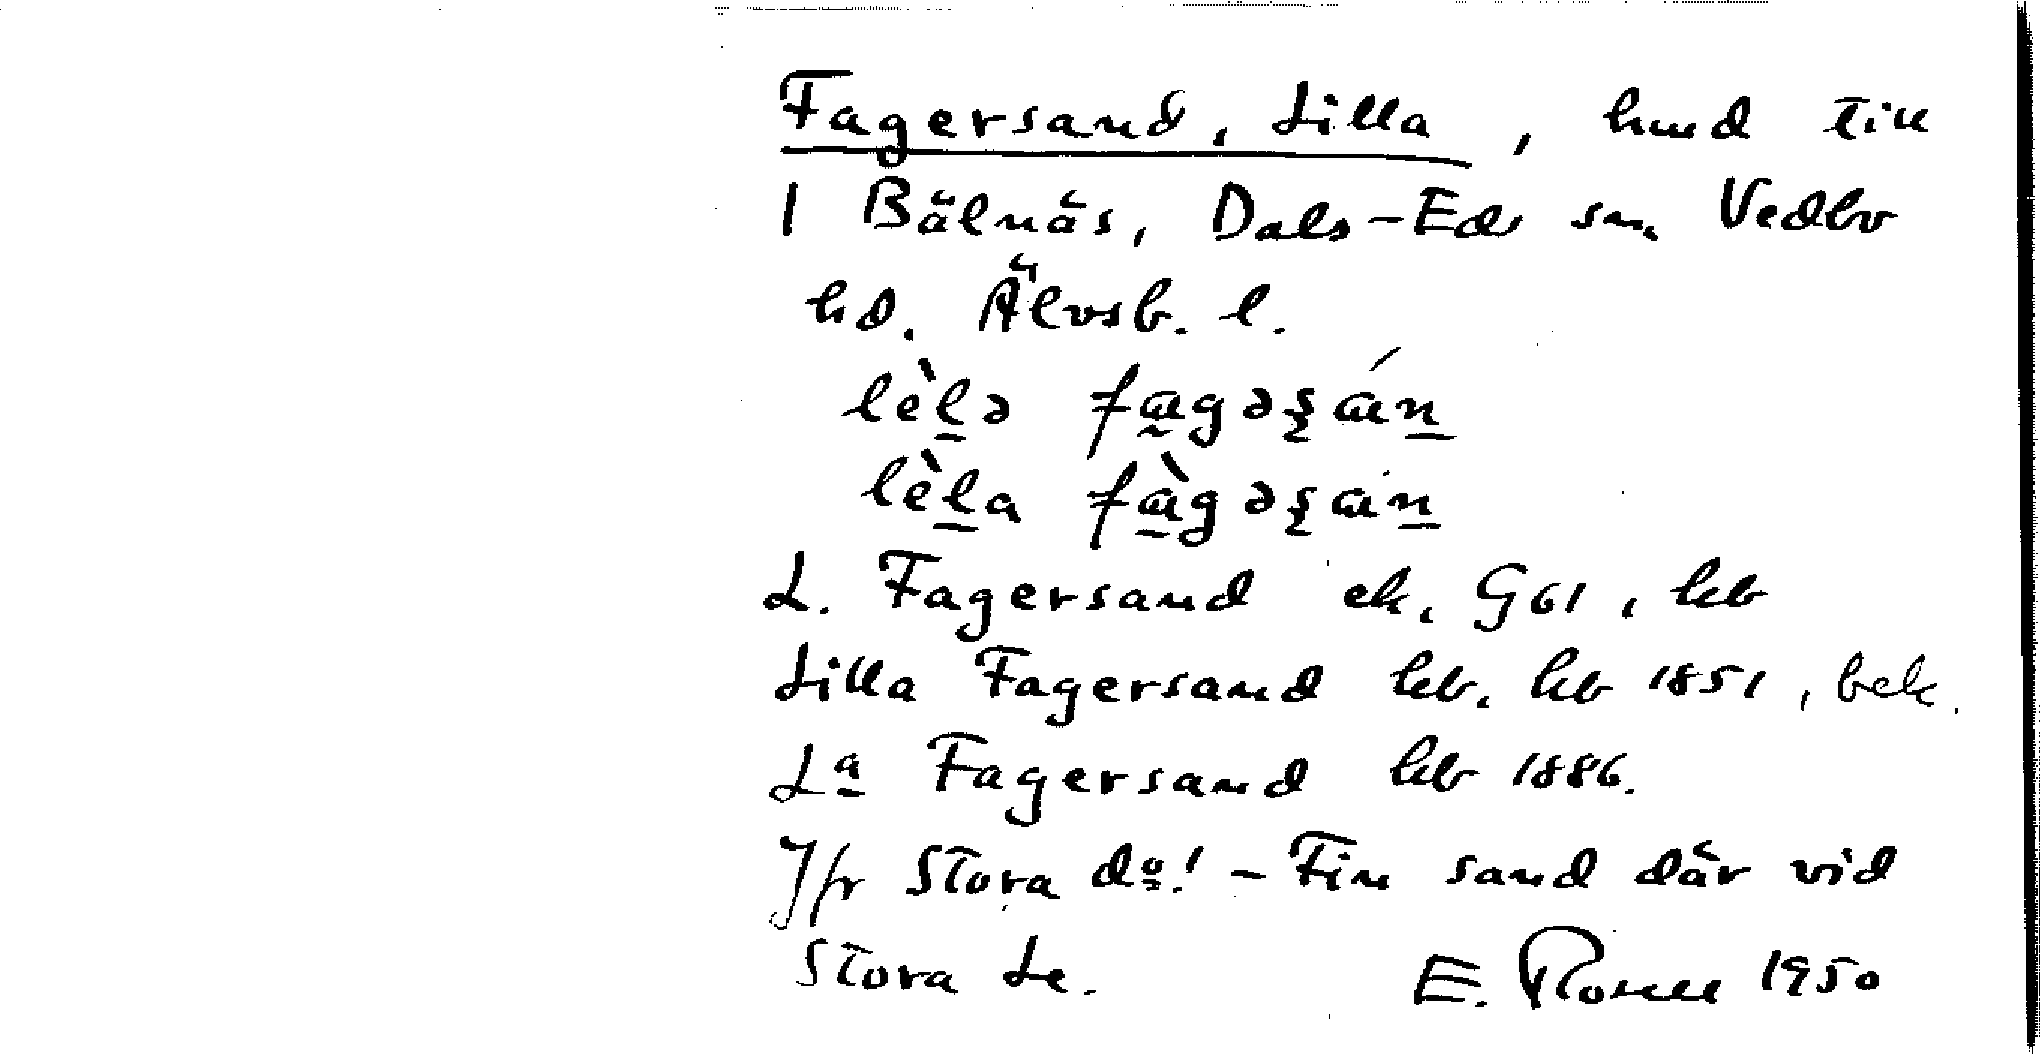 Fagersand, Lilla, hmd till
1 Bälnäs, Dals-Eds sn, Vedbo
hd. Älvsb. l.
lèl̠ə fa̰gəʂán̠
lèl̠a fà̰gəʂan̠
L. Fagersand ek, G61, kb
Lilla Fagersand kb. kb 1851, bek.
La Fagersand kb 1886.
Jfr Stora do! - Fin sand där vid
Stora Le. E. 1950